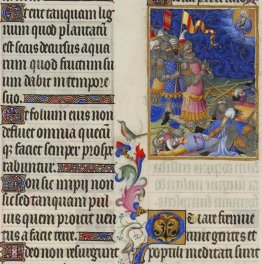 Et erit tanquam lig
num quod plantatū
est secus decursus aqua
rum quod fructum su
um dabit in tempore
suo.
Et folium eius non
defluet omnia quecū
q; faciet semper prospe
rabuntur.
Non sic impii non
sic sed tanquam pul
uis quem proicit uen
tus a facie terre.
Ideo non resurgunt
Quare fremue
runt gentes et
populi meditati sunt